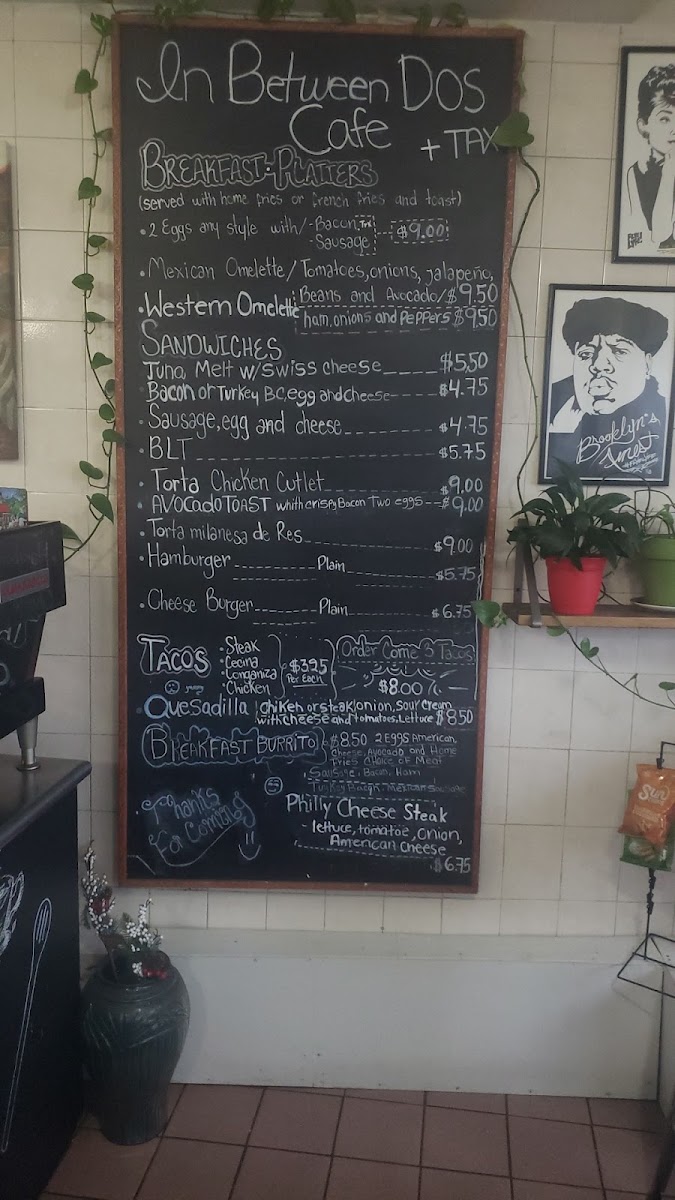 In Between Dos
Cafe
+ TAX
BREAKFAST-PLATTERS
(served with home fries or french fries and toast)
• 2 Eggs any style with/-Bacon
-Sausage $9.00
• Mexican Omelette/Tomatoes,onions, jalapeño,
Beans and Avocado/$9.50
• Western Omelette ham,onions and Peppers $9.50
SANDWICHES
Tuna Melt w/swiss cheese $5.50
Bacon or Turkey BC,egg and cheese $4.75
• Sausage,egg and cheese $4.75
• BLT $5.75
• Torta Chicken Cutlet $9.00
• AVOCADO TOAST whith crispy Bacon Two eggs $9.00
• Torta milanesa de Res $9.00
• Hamburger Plain $5.75
• Cheese Burger Plain $6.75
TACOS
• Steak
• Cecina
• Longaniza
• Chicken
$3.95
Per Each
Order Come 3 Tacos
$8.00
yummy
Quesadilla chiken or steak,onion,sour cream
with cheese and tomatoes,Lettuce $8.50
BREAKFAST BURRITO $8.50 2 EGGS American
Cheese, Avocado and Home
fries choice of Meat
Sausage, Bacon, Ham
Turkey Bacon, Mexican Sausage
Thanks
For Coming
Philly Cheese Steak
- lettuce, tomatoe, onion,
American cheese
$6.75
Brooklyn's
finest
Sun